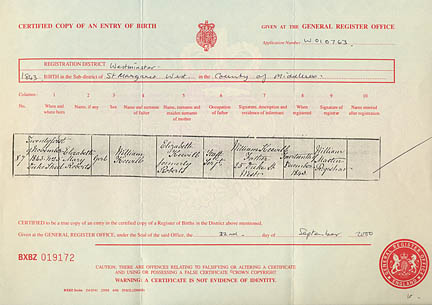 CERTIFIED COPY OF AN ENTRY OF BIRTH
GIVEN AT THE GENERAL REGISTER OFFICE
Application Number W010763
REGISTRATION DISTRICT Westminster
1843 BIRTH in the Sub-district of St Margaret West in the County of Middlesex
Columns:- 1 2 3 4 5 6 7 8 9 10
No. When and where born Name, if any Sex Name and surname of father Name, surname and maiden surname of mother Occupation of father Signature, description and residence of informant When registered Signature of registrar Name entered after registration
87 1843 Elizabeth Mary Roberts Girl William Elizabeth formerly Roberts William Father 25 Duke Street West December 1843 William Registrar
CERTIFIED to be a true copy of an entry in the certified copy of a Register of Births in the District above mentioned.
Given at the GENERAL REGISTER OFFICE, under the Seal of the said Office, the 22nd day of September 2000
BXBZ 019172
CAUTION: THERE ARE OFFENCES RELATING TO FALSIFYING OR ALTERING A CERTIFICATE
AND USING OR POSSESSING A FALSE CERTIFICATE ©CROWN COPYRIGHT
WARNING: A CERTIFICATE IS NOT EVIDENCE OF IDENTITY.
GENERAL REGISTER OFFICE
ENGLAND